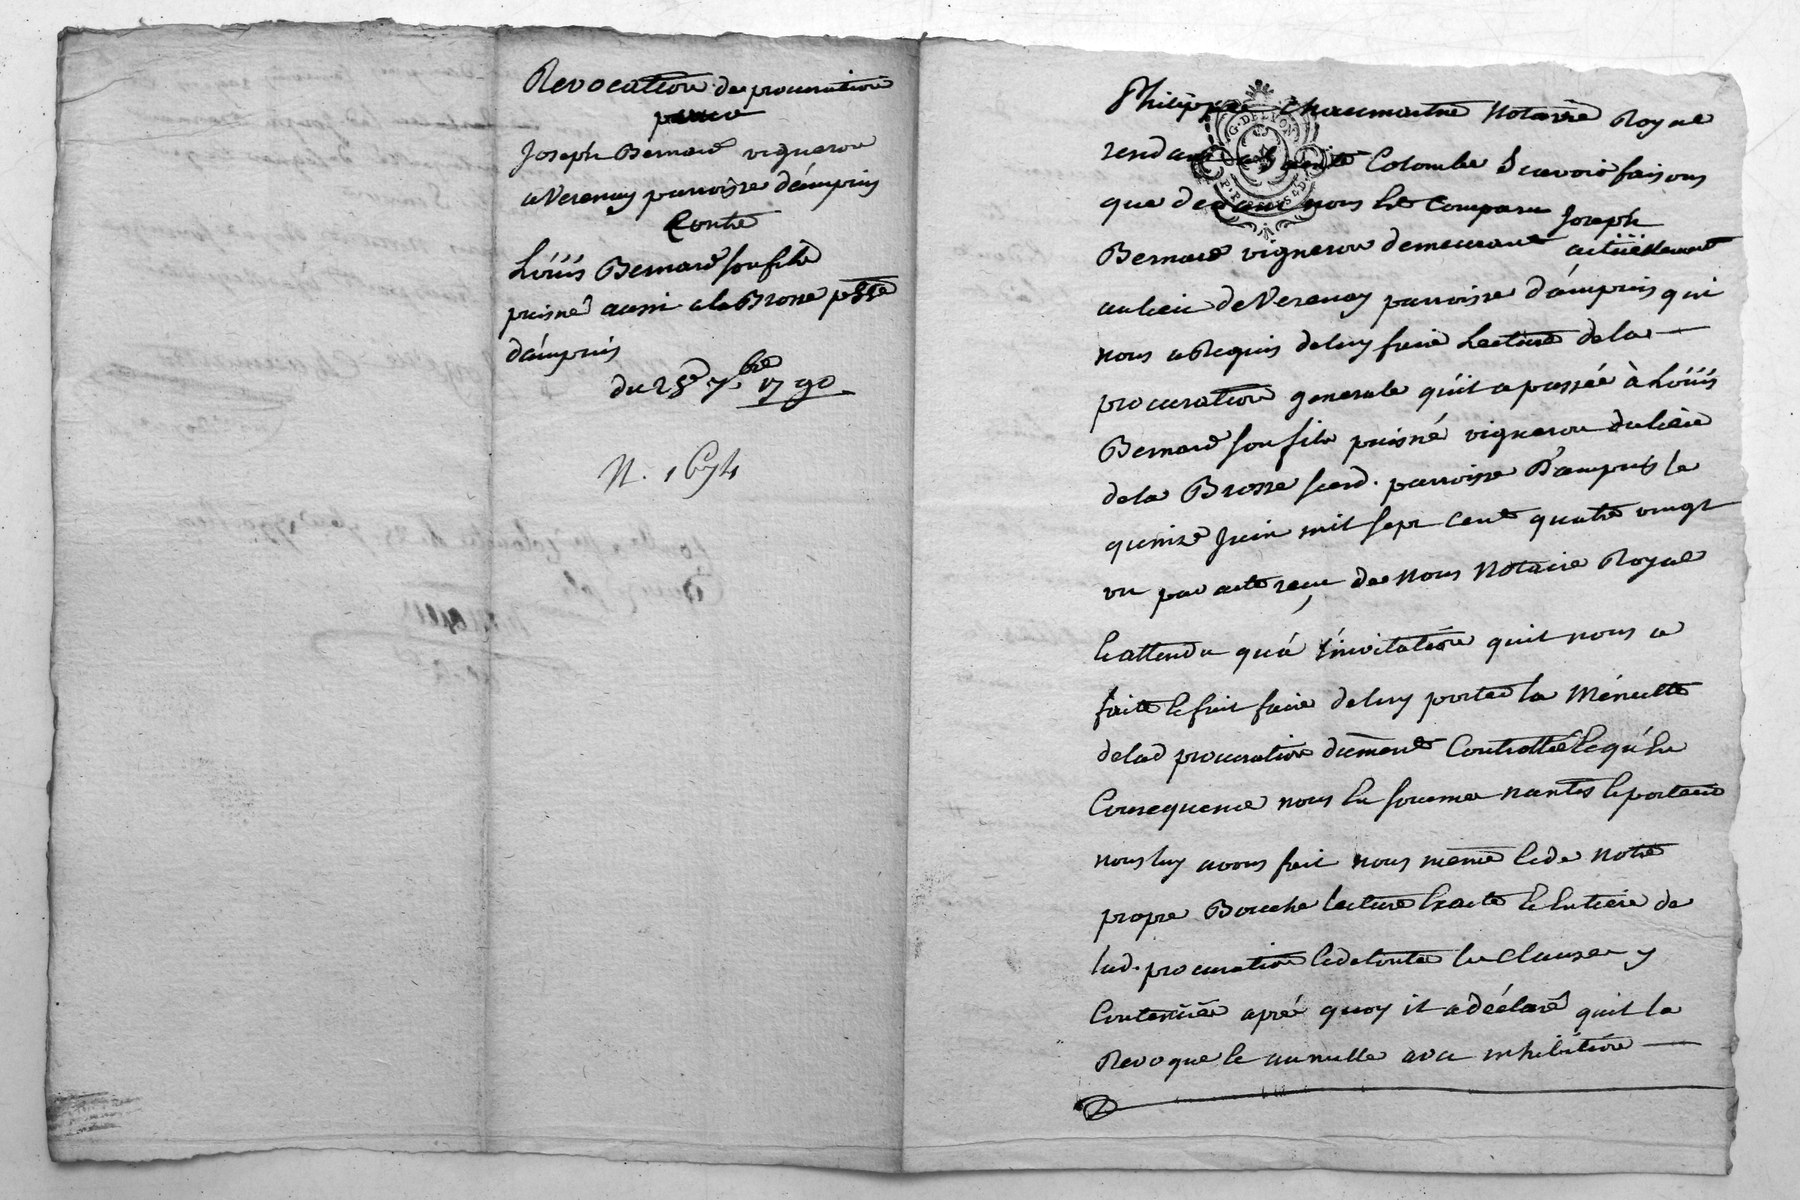 Revocation de procuration
par
Joseph Bernard vigneron
a Verenay parroisse d'ampuis
Contre
Loüis Bernard son fils
puisné aussi a la Brosse psse
d'ampuis
du 25e 7bre 1790
N. 1674
Philippe Chaumartin Notaire Royal
rendant Sainte Colombe Scavoir faisons
que devant nous Est Comparu Joseph
Bernard vigneron demeurant actüellement
au lieu de Verenay parroisse d'ampuis qui
nous a Requis de luy faire Lecture de la
procuration generale qu'il a passée à Loüis
Bernard son fils puisné vigneron du lieu
de la Brosse susd. parroisse D'ampuis le
quinze Juin mil sept Cent quatre vingt
un par acte recu de Nous Notaire Royal
Et attendu qu'á l'invitation qu'il nous a
faite Et fait faire de luy porter la Minutte
de lad procuration düment Controllée Et qu'En
Consequence nous En sommes nantis Et porteur
nous luy avons fait nous même Et de notre
propre Bouche lecture Exacte Et Entiere de
lad. procuration Et de toutes les Clauses y
Contenües aprés quoy il a déclaré qu'il la
Revoque Et annulle avec inhibition
G. DE LYON